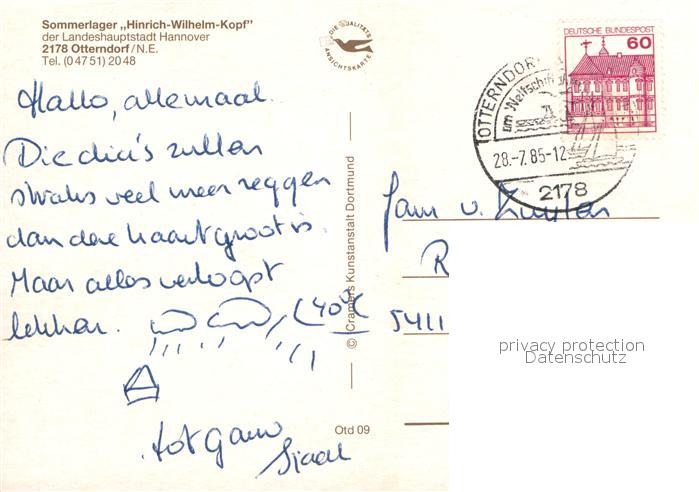 Sommerlager „Hinrich-Wilhelm-Kopf"
der Landeshauptstadt Hannover
2178 Otterndorf/N.E.
Tel. (0 47 51) 20 48
DIE QUALITÄTS
ANSICHTSKARTE
DEUTSCHE BUNDESPOST
60
OTTERNDORF
am Weltschiff
28.-7.85-12
2178
Hallo, allemaal.
Die dia's zullen
straks veel meer zeggen
dan deze kaart groot is.
Maar alles verloopt
lekker. 40°C
tot gauw
Sjaak
© Cramers Kunstanstalt Dortmund
Otd 09
Fam v.
R
5411
privacy protection
Datenschutz